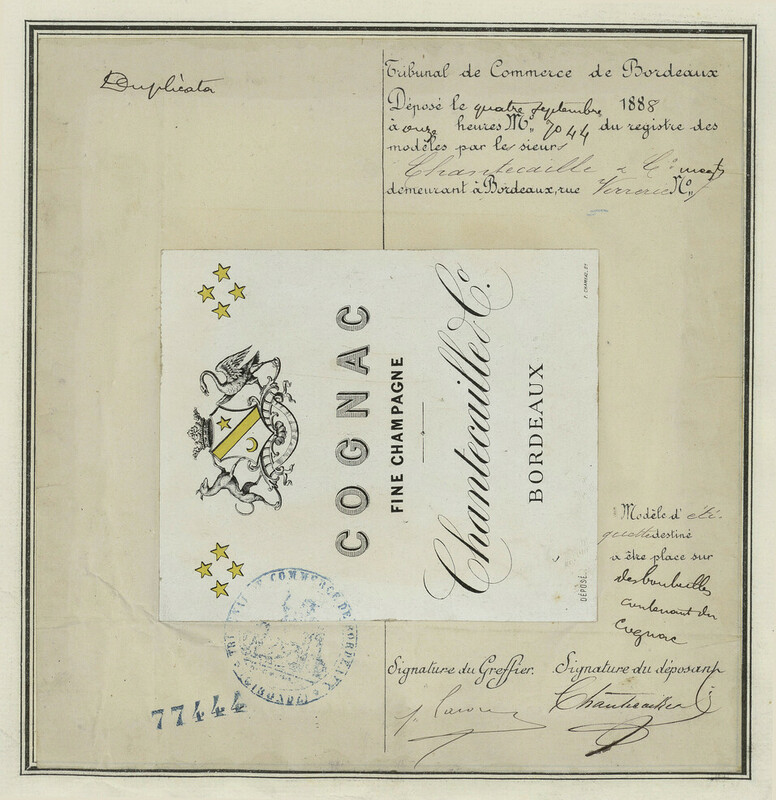 Duplicata
Tribunal de Commerce de Bordeaux
Déposé le quatre septembre 1888
à onze heures N° 7044 du registre des
modèles par les sieurs
Chantecaille & Cº
demeurant à Bordeaux, rue Verrerie Nº
COGNAC
FINE CHAMPAGNE
Chantecaille & Cº.
BORDEAUX
DÉPOSÉ
Modèle d'éti-
quette destiné
a être place sur
des bouteilles
contenant du
Cognac
TRIBUNAL DE COMMERCE DE BORDEAUX
(GIRONDE)
77444
Signature du Greffier.
Signature du déposant
Chantecaille